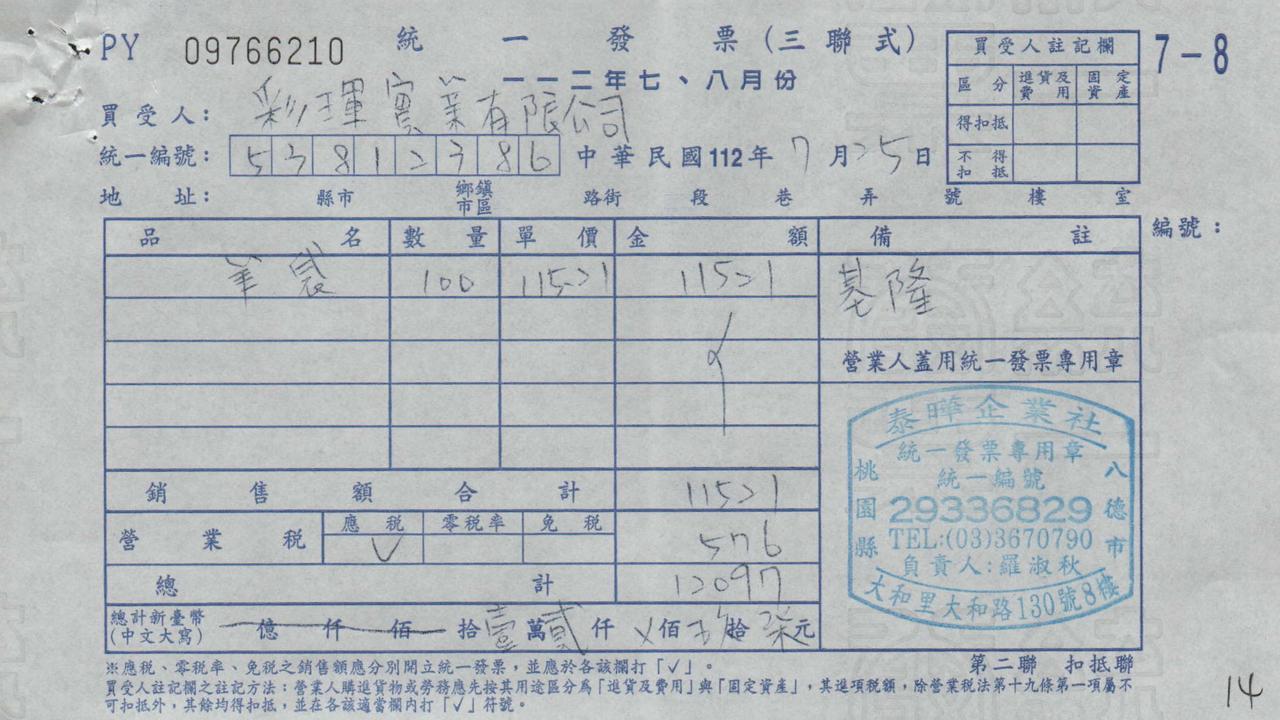 PY 09766210 統一發票(三聯式)
一一二年七、八月份
7-8
買受人註記欄
區分 進貨及費用 固定資產
得扣抵
不得扣抵
買受人: 彩琿實業有限公司
統一編號: 53812386 中華民國112年7月25日
地址: 縣市 鄉鎮市區 路街 段 巷 弄 號 樓 室
品名 數量 單價 金額 備註 編號:
100 11521 11521 基隆
營業人蓋用統一發票專用章
銷售額合計 11521
營業稅 應稅 零稅率 免稅 576
V
總計 12097
總計新臺幣(中文大寫) 億 仟 佰 拾壹萬貳仟 X佰玖拾柒元
泰曄企業社
統一發票專用章
統一編號
29336829
TEL:(03)3670790
負責人:羅淑秋
桃園縣 八德市
大和里大和路130號8樓
第二聯 扣抵聯
※應稅、零稅率、免稅之銷售額應分別開立統一發票,並應於各該欄打「✓」。
買受人註記欄之註記方法:營業人購進貨物或勞務應先按其用途區分為「進貨及費用」與「固定資產」,其進項稅額,除營業稅法第十九條第一項屬不
可扣抵外,其餘均得扣抵,並在各該適當欄內打「✓」符號。
14